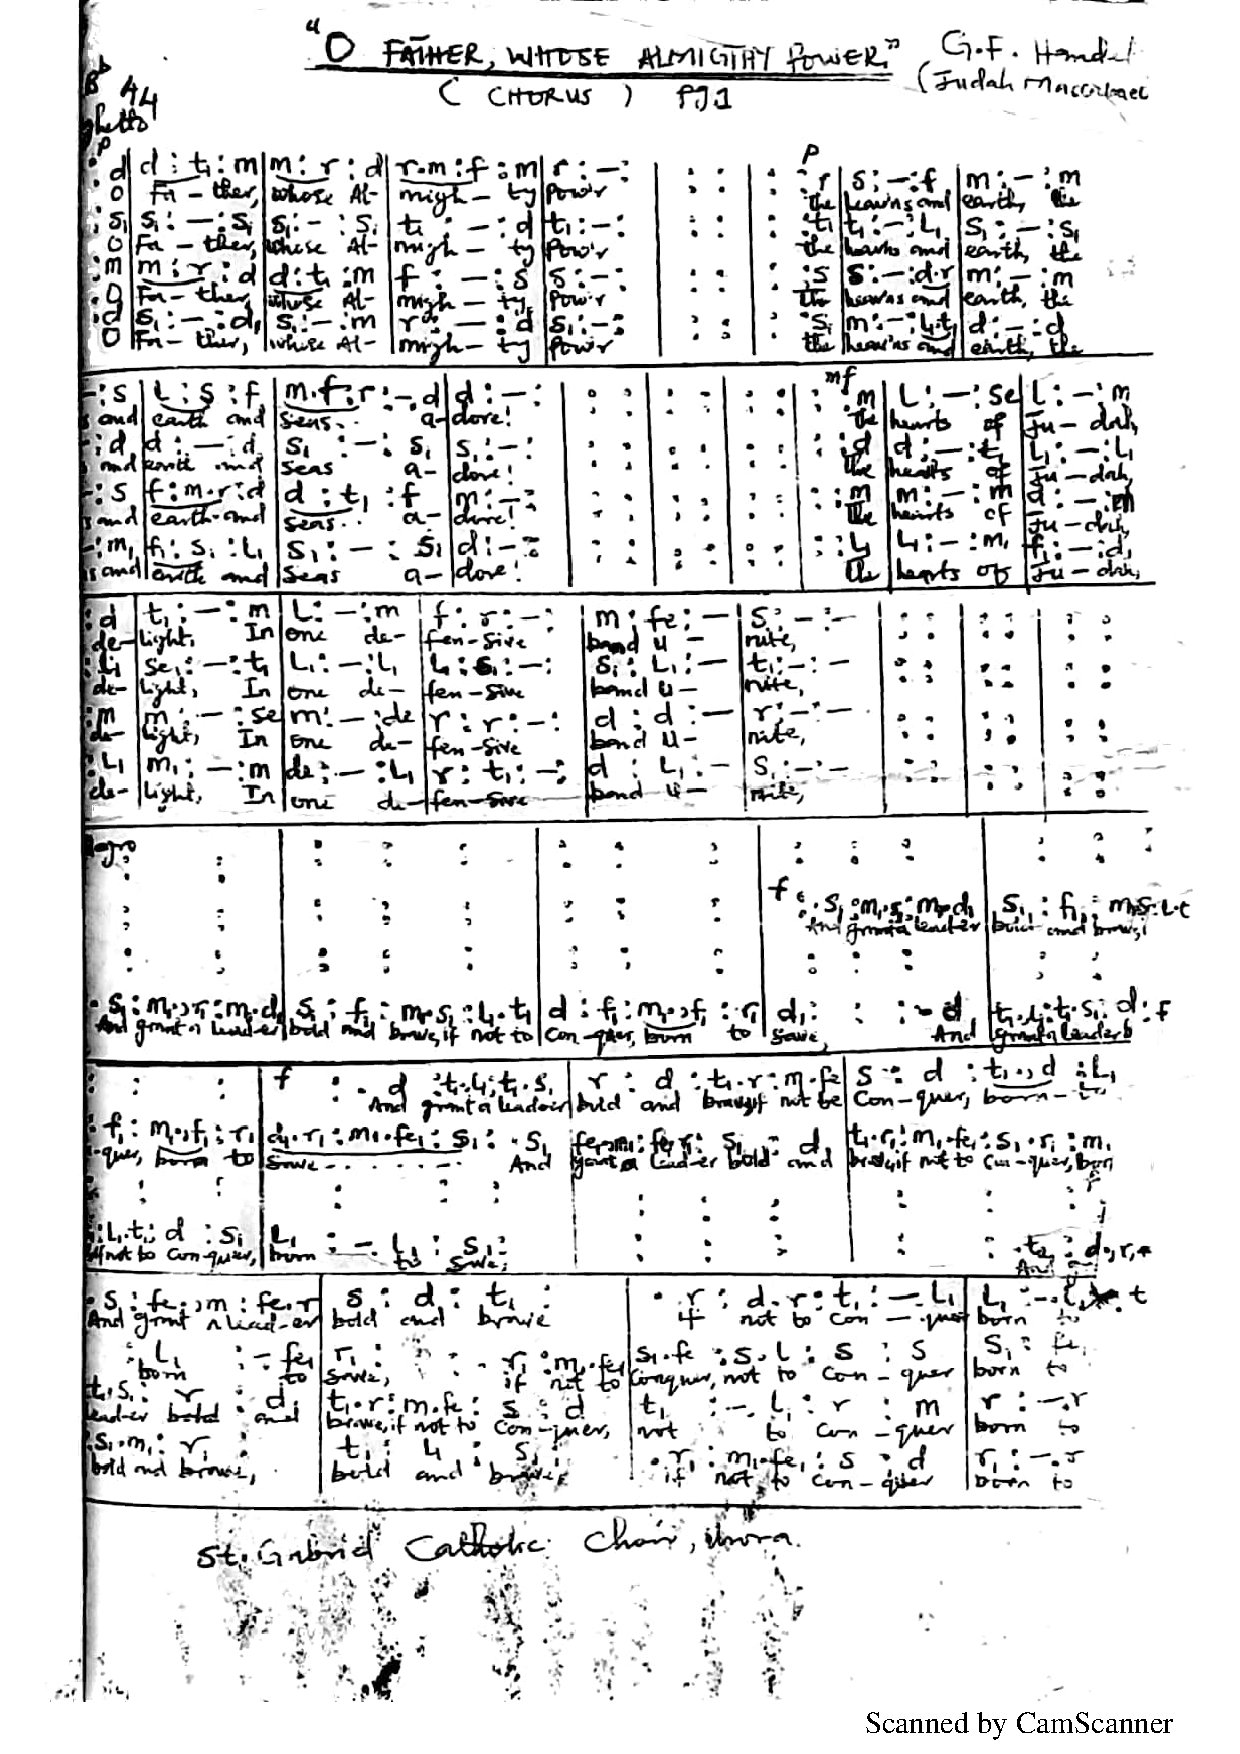 "O FATHER, WHOSE ALMIGTHY POWER" G.F. Handel
(CHORUS) PG1 (Judah Maccabaec
Bb 44
ghetto
p p
: d | d : t₁ : m | m : r : d | r.m : f : m | r : – : | : : | : r | s : – : f | m : – : m
O Fa – ther, whose Al– migh – ty Pow'r the heav'ns and earth, the
: s₁ | s₁ : – : s₁ | s₁ : – : s₁ | t₁ : – : d | t₁ : – : | : : | : t₁ | t₁ : – : L₁ | s₁ : – : s₁
O Fa – ther, whose Al– migh – ty Pow'r the heav'ns and earth, the
: m | m : r : d | d : t₁ : m | f : – : s | s : – : | : : | : s | s : – : d.r | m : – : m
O Fa – ther, whose Al– migh – ty Pow'r the heav'ns and earth, the
: d | s₁ : – : d₁ | s₁ : – : m | r : – : d | s₁ : – : | : : | : s₁ | m : – : L₁.t₁ | d : – : d
O Fa – ther, whose Al– migh – ty Pow'r the heav'ns and earth, the
mf
– : s | L : s : f | m.f : r : –.d | d : – : | : : | : : | : m | L : – : se | L : – : m
s and earth and seas.. a–dore! the hearts of Ju – dah,
– : d | d : – : d | s₁ : – : s₁ | s₁ : – : | : : | : : | : d | d : – : t₁ | L₁ : – : L₁
s and earth and seas a– dore! the hearts of Ju – dah,
– : s | f : m.r : d | d : t₁ : f | m : – : | : : | : : | : m | m : – : m | d : – : m
s and earth and seas.. a– dore! the hearts of Ju – dah,
– : m₁ | f₁ : s₁ : L₁ | s₁ : – : s₁ | d : – : | : : | : : | : L₁ | L₁ : – : m₁ | f₁ : – : d₁
s and earth and seas a– dore! the hearts of Ju – dah,
: d | t₁ : – : m | L : – : m | f : r : – : | m : fe : – | s : – : – | : : | : : | : :
de–light, In one de– fen–sive band u– nite,
: L₁ | se₁ : – : t₁ | L₁ : – : L₁ | L₁ : s₁ : – : | s₁ : L₁ : – | t₁ : – : – | : : | : : | : :
de– light, In one de– fen–sive band u– nite,
: m | m : – : se | m : – : de | r : r : – : | d : d : – | r : – : – | : : | : : | : :
de– light, In one de– fen–sive band u– nite,
: L₁ | m₁ : – : m | de : – : L₁ | r : t₁ : – : | d : L₁ : – | s₁ : – : – | : : | : : | : :
de– light, In one de–fen–sive band u– nite,
legro
f
. s₁ : m₁.s₁ : m₁.d₁ | s₁ : f₁ : m₁.s₁ : L.t
And grant a leader bold and brave,
. s₁ : m₁.,r₁ : m₁.d₁ | s₁ : f₁ : m₁.s₁ : L₁.t₁ | d : f₁ : m₁.,f₁ : r₁ | d₁ : : : –.d | t₁.L₁ : t₁.s₁ : d : f
And grant a leader bold and brave, if not to Con–quer, born to save, And grant a leader b
f
: : | : . d : t₁.L₁ : t₁.s₁ | r : d : t₁.r : m.fe | s : d : t₁.,d : L₁
And grant a leader bold and brave, if not be Con–quer, born–to
: f₁ : m₁.,f₁ : r₁ | d₁.r₁ : m₁.fe₁ : s₁ : .s₁ | fe₁.m₁ : fe₁.r₁ : s₁ : d | t₁.r₁ : m₁.fe₁ : s₁.r₁ : m₁
–quer, born to save........ And grant a lead–er bold and brave, if not to Con–quer, born
: L₁.t₁ : d : s₁ | L₁ : –.L₁ : s₁ : .t₂ : d₁.,r₁
if not to Con–quer, born to save, And
. s : fe.,m : fe.r | s : d : t₁ : | . r : d.r : t₁ : –.L₁ | L₁ : –.L . t
And grant a lead–er bold and brave if not to Con – quer born to
: L₁ : – fe₁ | r₁ : : . r₁ : m₁.fe₁ | s₁.fe : s.l : s : s | s₁ : fe₁
born to save, if not to Conquer, not to Con – quer born to
t₁.s₁ : r : d | t₁.r : m.fe : s : d | t₁ : –.L₁ : r : m | r : –.r
lead–er bold and brave, if not to Con–quer, not to Con – quer born to
: s₁.m₁ : r₁ : | t₁ : L₁ : s₁ : | . r₁ : m₁.fe₁ : s : d | r₁ : –.r
bold and brave, bold and brave if not to Con–quer born to
St. Gabriel Catholic Choir,
Scanned by CamScanner